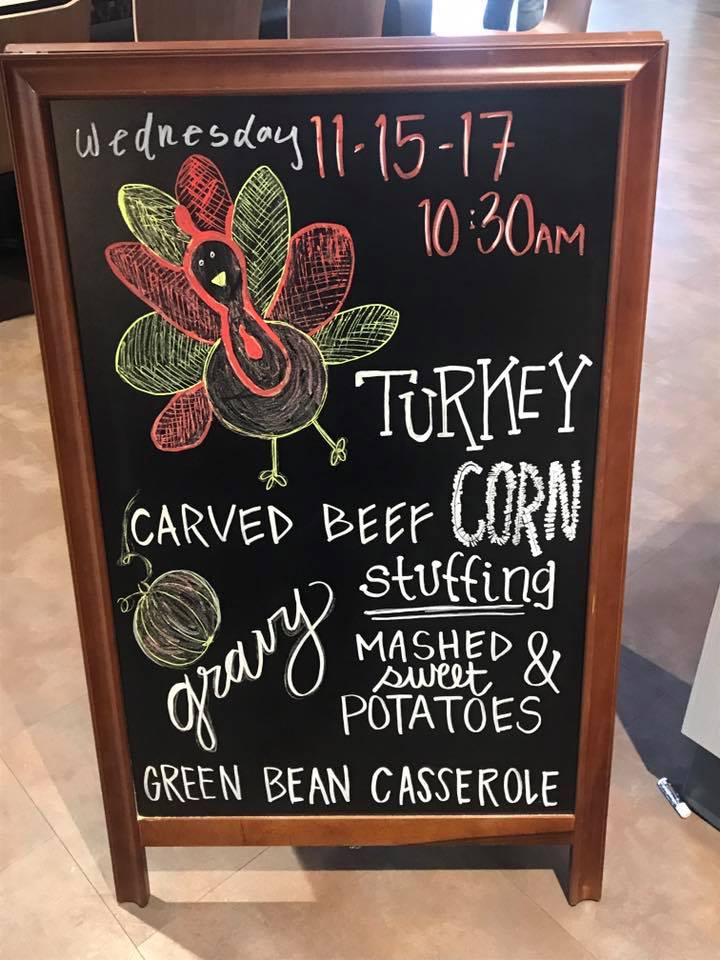 Wednesday 11-15-17
10:30AM
TURKEY
CARVED BEEF CORN
stuffing
gravy
MASHED &
sweet
POTATOES
GREEN BEAN CASSEROLE